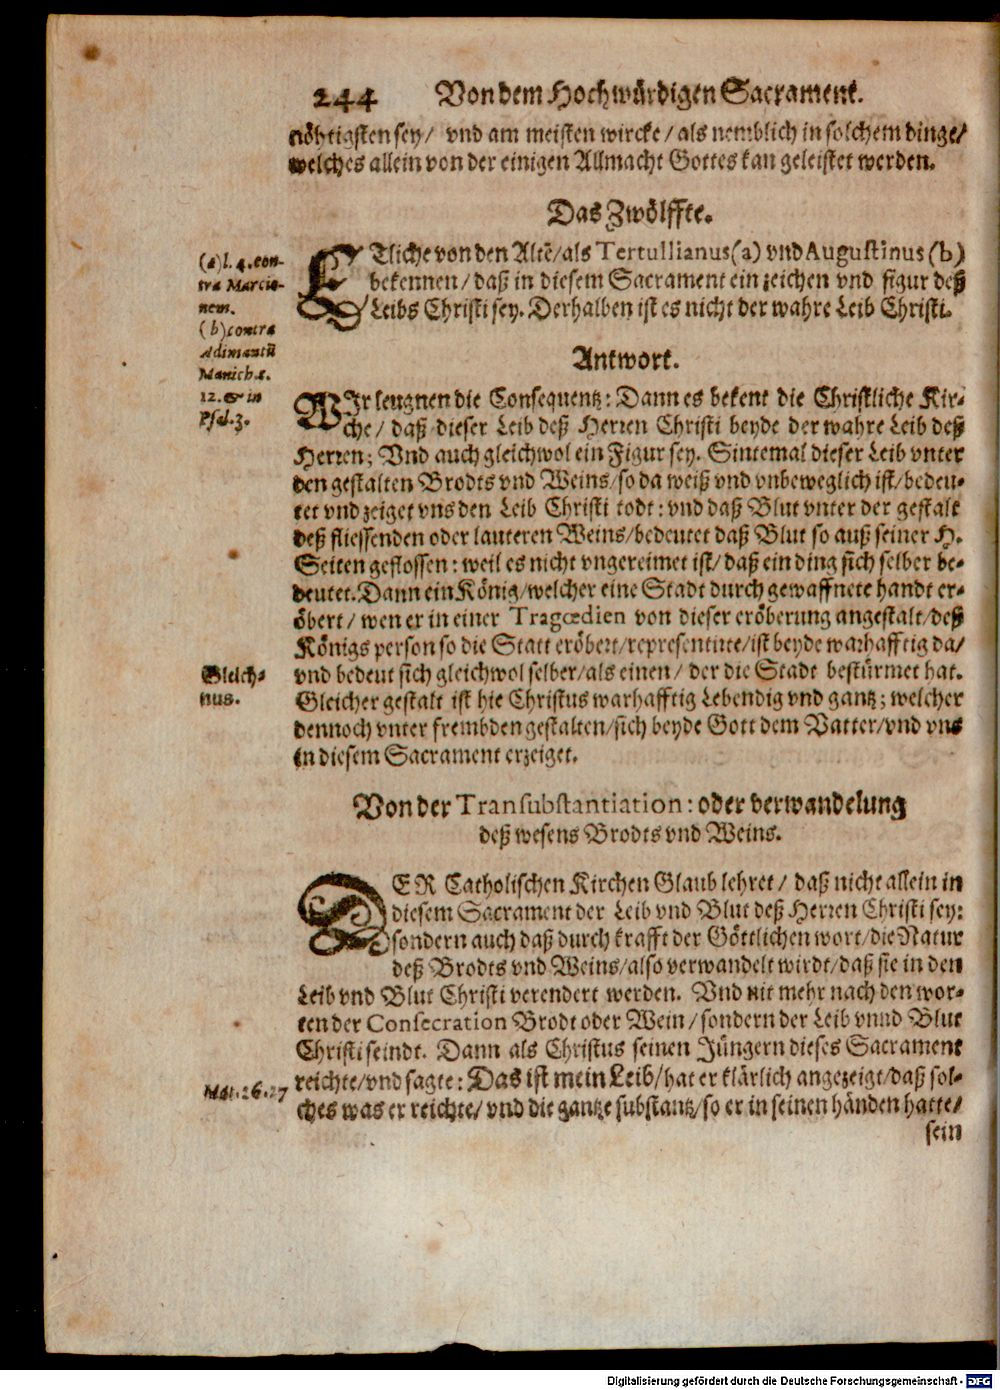 244 Von dem Hochwürdigen Sacrament.
nöhtigsten sey/ vnd am meisten wircke/ als nemblich in solchem dinge/
welches allein von der einigen Allmacht Gottes kan geleistet werden.
Das Zwölffte.
ETliche von den Altē/ als Tertullianus (a) vnd Augustinus (b)
bekennen/ daß in diesem Sacrament ein zeichen vnd figur deß
Leibs Christi sey. Derhalben ist es nicht der wahre Leib Christi.
(a) l. 4. con-
tra Marcio-
nem.
(b) contra
Adimantū
Manich. c.
12. & in
Psal. 3.
Antwort.
WIr leugnen die Consequentz: Dann es bekent die Christliche Kir-
che/ daß dieser Leib deß Herren Christi beyde der wahre Leib deß
Herren; Vnd auch gleichwol ein Figur sey. Sintemal dieser Leib vnter
den gestalten Brodts vnd Weins/ so da weiß vnd vnbeweglich ist/ bedeu-
tet vnd zeiget vns den Leib Christi todt: vnd daß Blut vnter der gestalt
deß fliessenden oder lauteren Weins/ bedeutet daß Blut so auß seiner H.
Seiten geflossen: weil es nicht vngereimet ist/ daß ein ding sich selber be-
deutet. Dann ein König/ welcher eine Stadt durch gewaffnete handt er-
öbert/ wen er in einer Tragœdien von dieser eröberung angestalt/ deß
Königs person so die Statt eröbert/ representirte/ ist beyde warhafftig da/
vnd bedeut sich gleichwol selber/ als einen/ der die Stadt bestürmet hat.
Gleicher gestalt ist hie Christus warhafftig Lebendig vnd gantz; welcher
dennoch vnter frembden gestalten/ sich beyde Gott dem Vatter/ vnd vns
in diesem Sacrament erzeiget.
Gleich-
nus.
Von der Transubstantiation: oder verwandelung
deß wesens Brodts vnd Weins.
DER Catholischen Kirchen Glaub lehret/ daß nicht allein in
diesem Sacrament der Leib vnd Blut deß Herren Christi sey:
sondern auch daß durch krafft der Göttlichen wort/ die Natur
deß Brodts vnd Weins/ also verwandelt wirdt/ daß sie in den
Leib vnd Blut Christi verendert werden. Vnd nit mehr nach den wor-
ten der Consecration Brodt oder Wein/ sondern der Leib vnnd Blut
Christi seindt. Dann als Christus seinen Jüngern dieses Sacrament
reichte/ vnd sagte: Das ist mein Leib/ hat er klärlich angezeigt/ daß sol-
ches was er reichte/ vnd die gantze substantz/ so er in seinen händen hatte/
Mat. 26. 27
sein
Digitalisierung gefördert durch die Deutsche Forschungsgemeinschaft - DFG